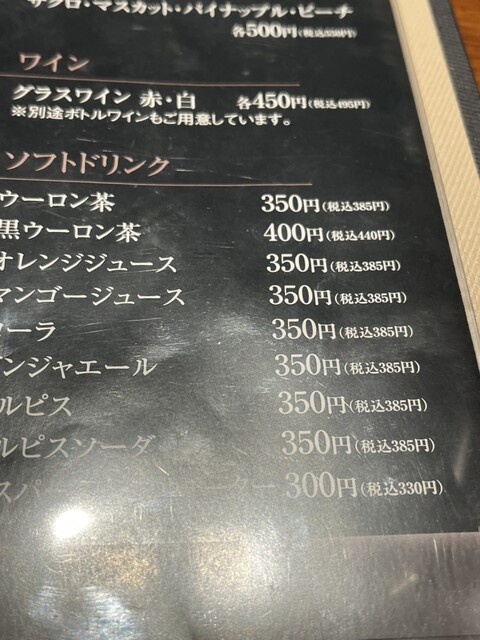 ザクロ・マスカット・パイナップル・ピーチ
各500円(税込550円)
ワイン
グラスワイン 赤・白 各450円(税込495円)
※別途ボトルワインもご用意しています。
ソフトドリンク
ウーロン茶 350円(税込385円)
黒ウーロン茶 400円(税込440円)
オレンジジュース 350円(税込385円)
マンゴージュース 350円(税込385円)
コーラ 350円(税込385円)
ジンジャエール 350円(税込385円)
ルピス 350円(税込385円)
ルピスソーダ 350円(税込385円)
スパ ーター 300円(税込330円)